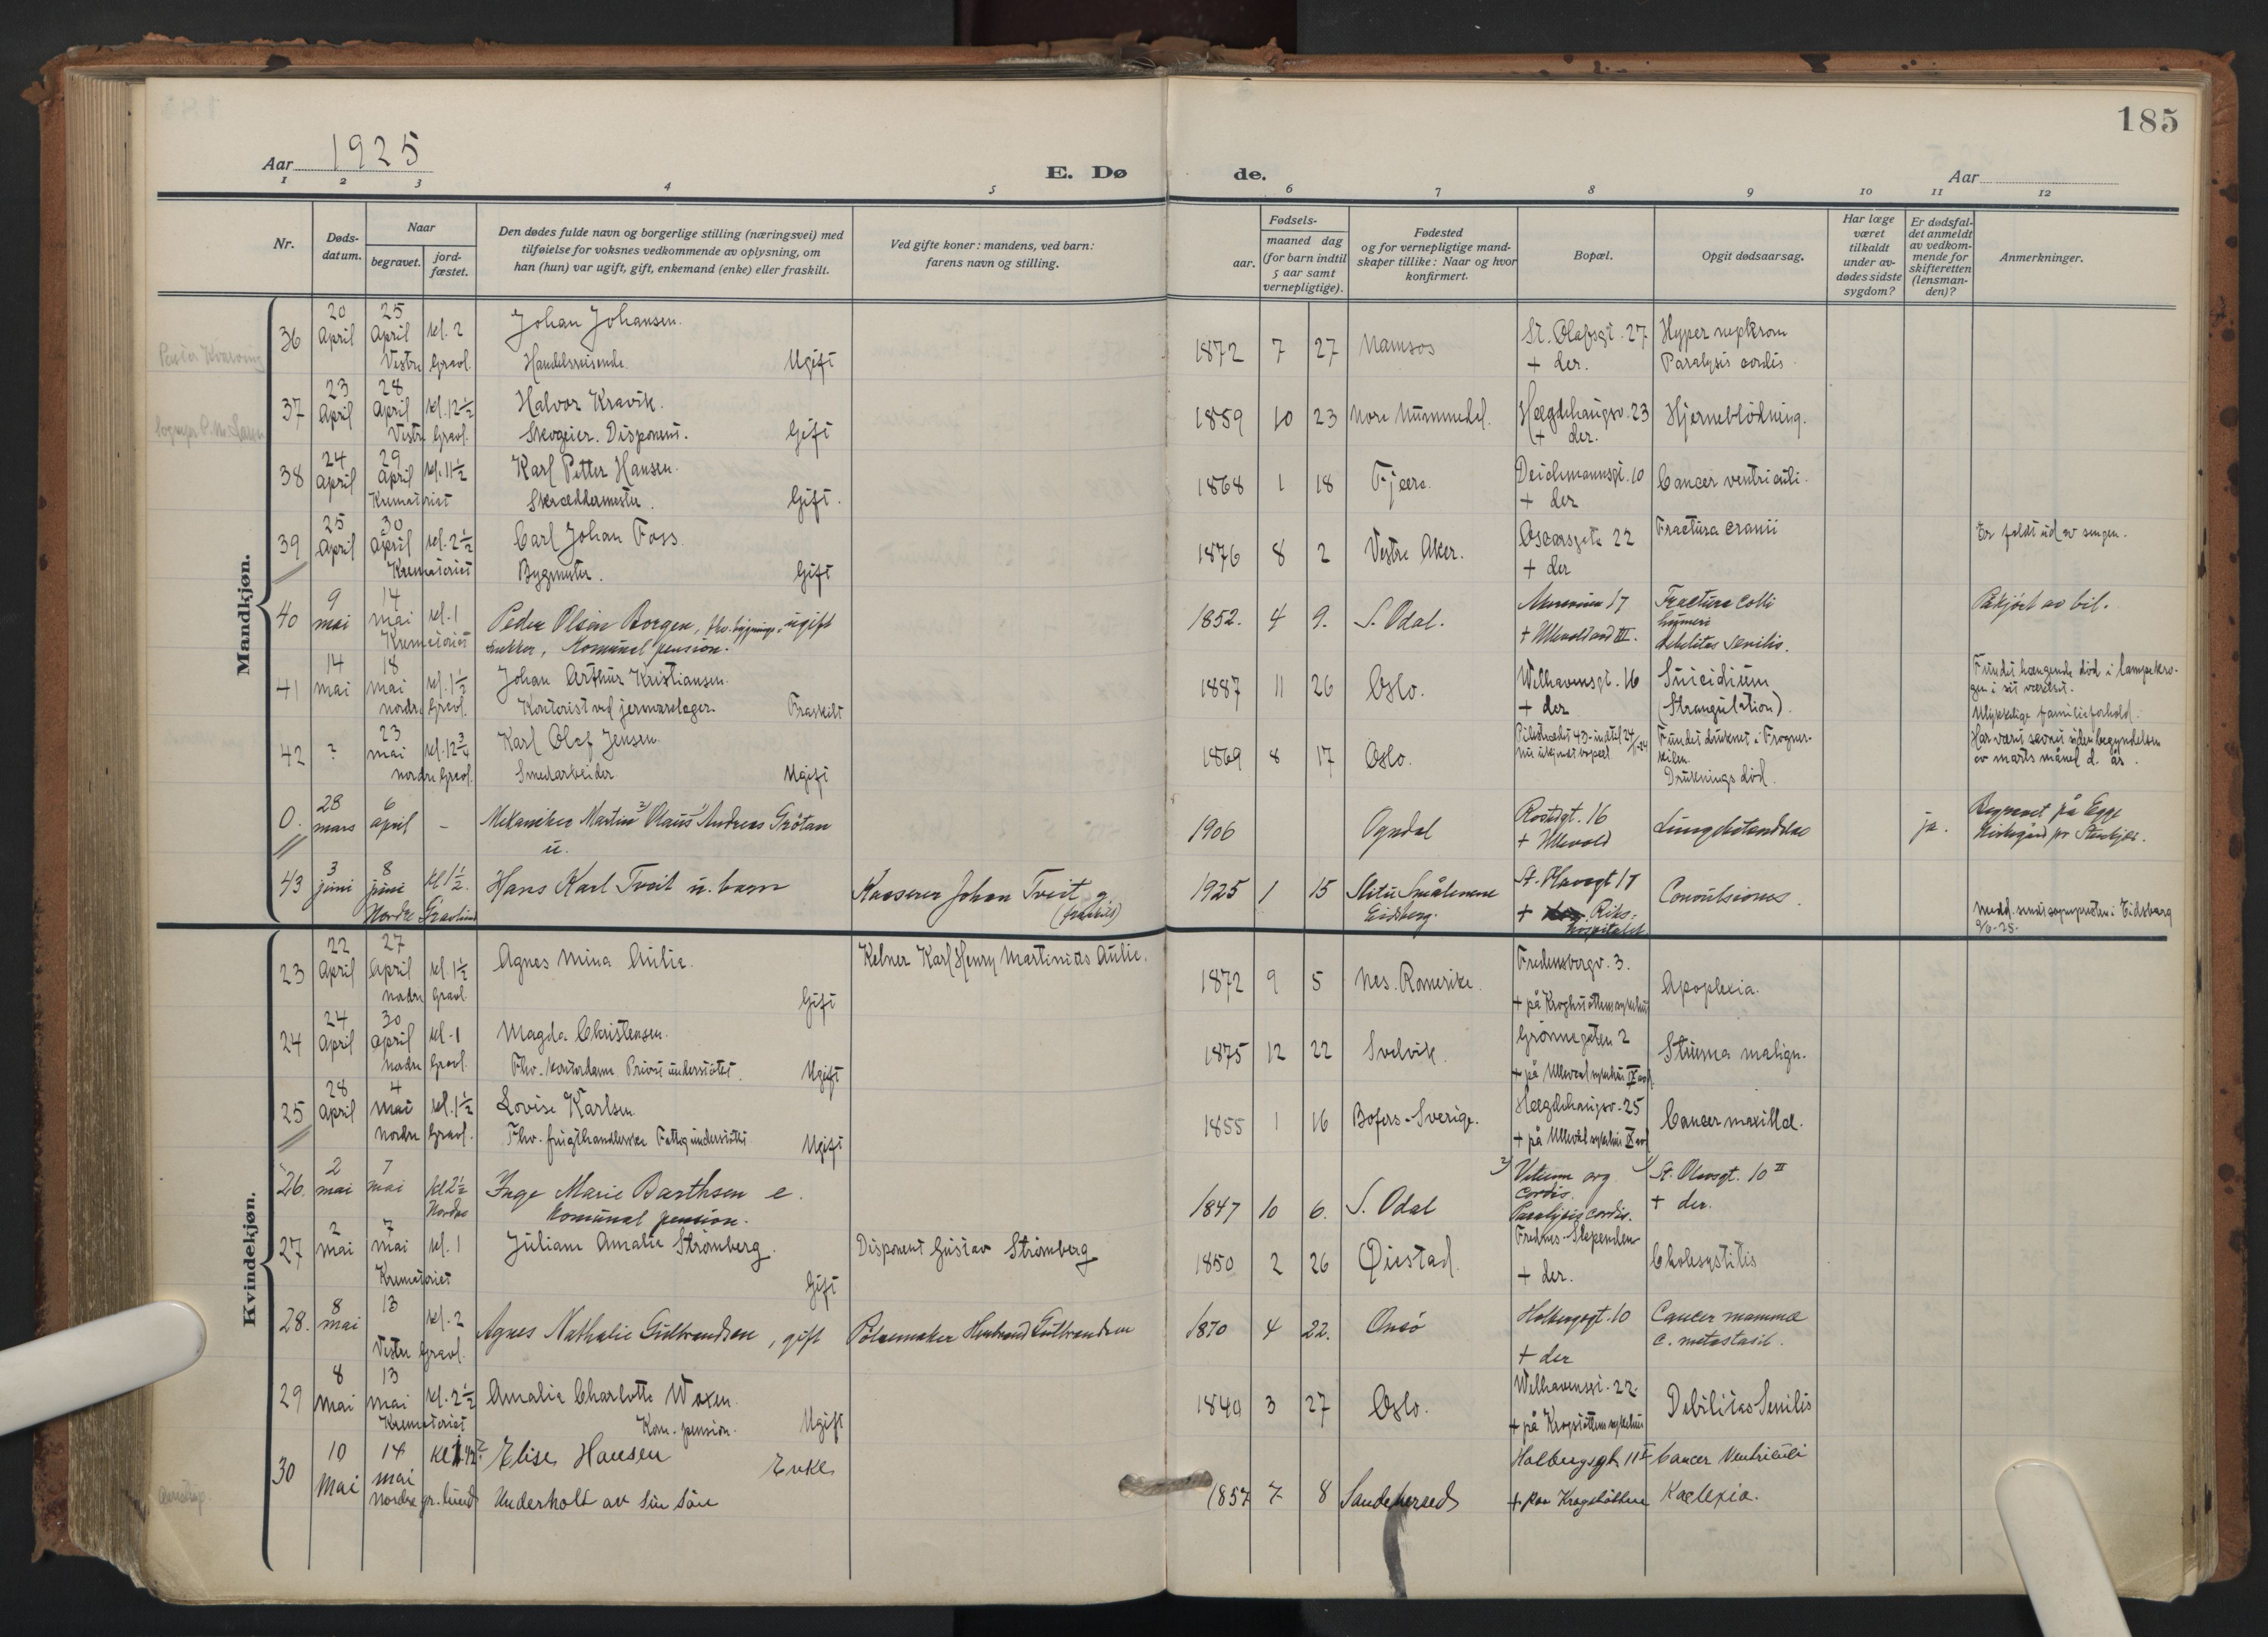 185
Aar 1925
E. Dø de.
Aar
1 2 3 4 5 6 7 8 9 10 11 12
Nr.
Døds-
datum.
Naar
begravet.
jord-
fæstet.
Den dødes fulde navn og borgerlige stilling (næringsvei) med
tilføielse for voksnes vedkommende av oplysning, om
han (hun) var ugift, gift, enkemand (enke) eller fraskilt.
Ved gifte koner: mandens, ved barn:
farens navn og stilling.
Fødsels-
aar.
maaned dag
(for barn indtil
5 aar samt
vernepligtige).
Fødested
og for vernepligtige mand-
skaper tillike: Naar og hvor
konfirmert.
Bopæl.
Opgit dødsaarsag.
Har læge
været
tilkaldt
under av-
dødes sidste
sygdom?
Er dødsfal-
det anmeldt
av vedkom-
mende for
skifteretten
(lensman-
den)?
Anmerkninger.
Mandkjøn.
20 25
36 April April kl. 2 Johan Johansen.
Vestre Gravl. Handelsreisende Ugift
1872 7 27 Namsos St. Olafsgt. 27
+ der.
Paralysis cordis
23 28
37 April April kl. 12½ Halvor Kravik.
Vestre Gravl. Skogeier. Disponent. Gift
1859 10 23 Nore Nummedal. Hægdehaugsv. 23 Hjerneblödning.
+ der.
24 29
38 April April kl. 11½ Karl Petter Hansen.
Krematoriet Skræddermester. Gift.
1868 1 18 Fjære. Deichmannsgt. 10 Cancer ventriculi.
+ der
25 30
39 April April kl. 2½ Carl Johan Foss.
Krematoriet Bygmester. Gift
1876 8 2 Vestre Aker. Oscarsgate 22 Fractura cranii Er faldt ud av sengen.
+ der
9 14
40 mai mai kl. 1 Peder Olsen Borgen, fhv. bygnings- ugift
Krematoriet snekker, Komunal pension.
1852. 4 9. S. Odal. 17 Fractura colli Påkjört av bil.
humeri
+ Ullevold avd III. debilitas senilis.
14 18
41 mai mai kl. 1½ Johan Arthur Kristiansen.
nordre Gravl. Kontorist ved jernvarelager. Fraskilt
1887 11 26 Oslo. Welhavensgt. 16 Suicidium
+ der (Strangulation).
Fundet hængende död i lampekro-
gen i sit værelse.
Ulykkelige familieforhold.
23
42 ? mai kl. 12¾ Karl Olaf Jensen
nordre Gravl. Smedarbeider. Ugift
1869 8 17 Oslo. Pilestrædet 49 - indtil 24/1-24
nu ukjendt bopæl
Fundet druknet i Frogner-
kilen.
Drukningsdöd.
Har været savnet siden begyndelsen
av marts måned d. år.
28 6
0. mars april - Mekaniker Martin 2) Olaus 1) Andreas Grötan
u.
1906 Ogndal 16 Lungebetændelse ja.
+ Ullevold
Begravet på Egge
kirkegård pr Stenkjær.
3 8
43 juni juni kl 1½. Hans Karl Tveit u. barn Kasserer Johan Tveit g
Nordre Gravlund (fraskilt)
1925 1 15 Slitu Smålenene St. Olavsgt 17 Convulsiones.
Eidsberg. + Riks-
hospitalet
Medd. sendt sognepresten i Eidsberg
9/6-25.
Kvindekjøn.
22 27
23 April April kl. 1½ Agnes Mina Aulie. Kelner Karl Henry Martinius Aulie.
nordre Gravl. Gift
1872 9 5 Nes. Romerike. Fredensborgv. 3. Apoplexia.
+ på Kroghstöttens sykehus
24 30
24 April April kl. 1 Magda Christensen.
nordre Gravl. Fhv. kontordame Privat understöttet. Ugift
1875 12 22 Svelvik. Grönnegaten 2 Struma malign.
+ på Ullevaal sykehus IX avd.
28 4
25 April Mai kl. 1½ Lovise Karlsen
nordre Gravl. Fhv. frugthandlerske Fattigunderstöttet Ugift
1855 1 16 Bofors - Sverige. Hægdehaugsv. 25 Cancer maxillæ.
+ på Ullevål sykehus IX avd
2 7
26. mai mai kl 2½ Inge Marie Barthsen e.
Nordre Komunal pension.
1847 10 6. S. Odal 2) Vitium org 1) St. Olavsgt. 10 II
cordis. + der.
Paralysis cordis.
2 7
27 mai mai kl. 1 Juliane Amalie Strömberg. Disponent Gustav Strömberg
Krematoriet Gift
1850 2 26 Øiestad. Cholesystitis
+ der.
8 13
28. mai kl. 2 Agnes Nathalie Gulbrandsen, gift Pölsemaker Gulbrandsen
Vestre Gravl.
1870 4 22. Onsö Holbergsgt. 10 Cancer mamma
+ der c. metastasis.
8 13
29 mai mai kl. 2½ Amalie Charlotte Woxen.
Krematoriet Kom. pension. Ugift
1840 3 27 Oslo. Welhavensgt. 22. Debilitas Senilis
+ på Krogstöttens sykehus
10 14
30 Mai mai Elise Hansen Enke
Nordre gr.lund Underholt av sin sön
1857 7 8 Sandeherred Holbergsgt. 11 I Cancer Ventriculi
+ paa Krogstötten Kaclexia.